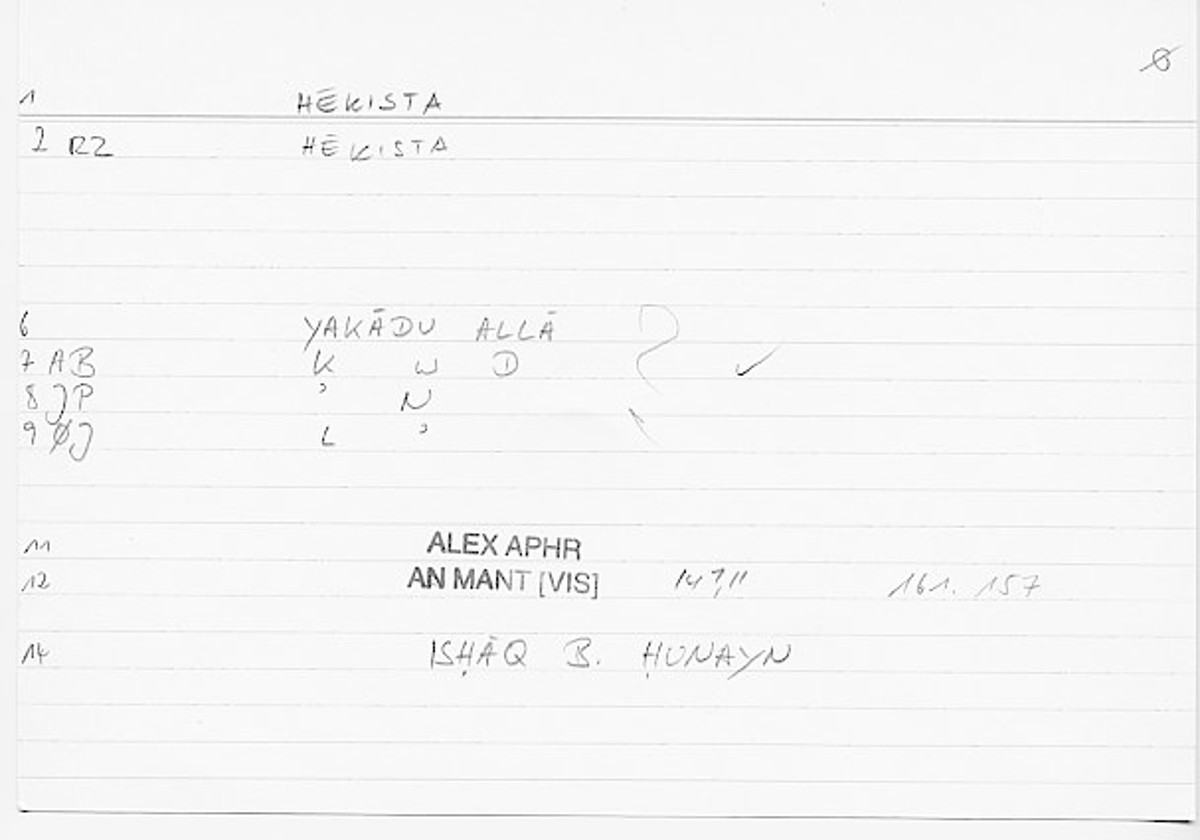 Ø
1 HĒKISTA
2 RZ HĒKISTA
6 YAKĀDU ALLĀ
7 AB K W D ✓
8 JP ʾ N
9 ØJ L ʾ
11 ALEX APHR
12 AN MANT [VIS] 147,11 161. 157
14 ISḤĀQ B. ḤUNAYN